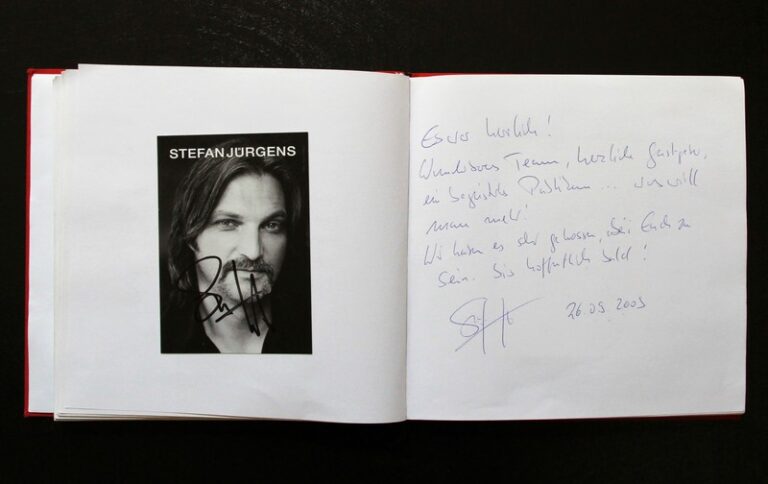 STEFAN JÜRGENS
Es war herrlich!
Wunderbares Team, herzliche Gastgeber,
ein begeistertes Publikum ... was will
man mehr!
Wir haben es sehr genossen, bei Euch zu
sein. Bis hoffentlich bald!
26.09 2009